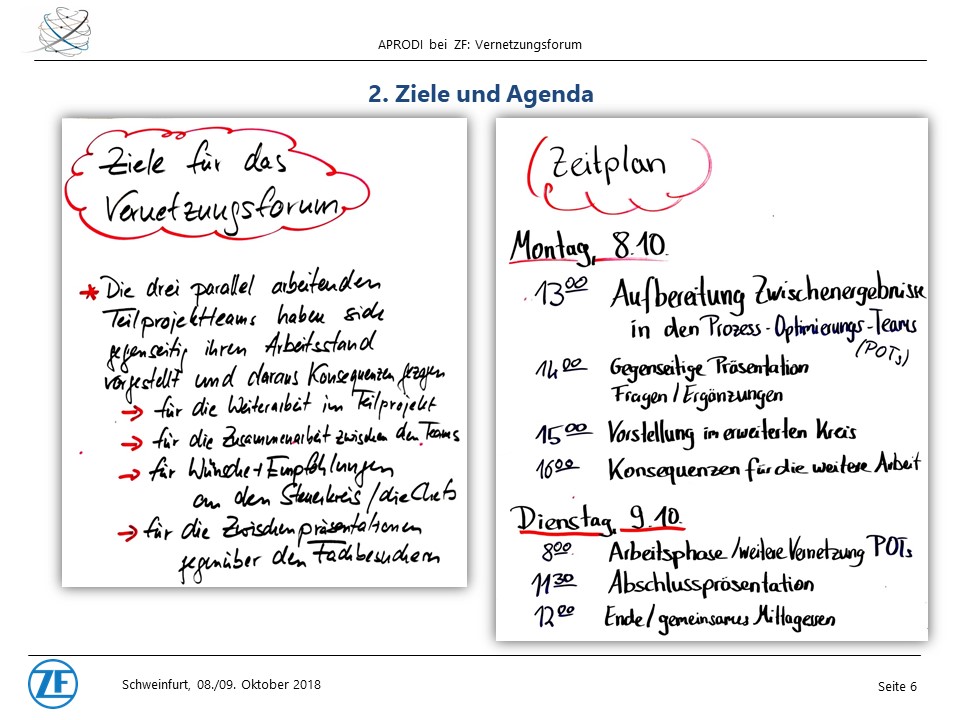 APRODI bei ZF: Vernetzungsforum
2. Ziele und Agenda
Ziele für das
Vernetzungsforum
* Die drei parallel arbeitenden
Teilprojektteams haben sich
gegenseitig ihren Arbeitsstand
vorgestellt und daraus Konsequenzen gezogen
→ für die Weiterarbeit im Teilprojekt
→ für die Zusammenarbeit zwischen den Teams
→ für Wünsche + Empfehlungen
an den Steuerkreis / die Chefs
→ für die Zwischenpräsentationen
gegenüber den Fachbesuchern
Zeitplan
Montag, 8.10.
13⁰⁰ Aufbereitung Zwischenergebnisse
in den Prozess-Optimierungs-Teams
(POTs)
14⁰⁰ Gegenseitige Präsentation
Fragen / Ergänzungen
15⁰⁰ Vorstellung im erweiterten Kreis
16⁰⁰ Konsequenzen für die weitere Arbeit
Dienstag, 9.10.
8⁰⁰ Arbeitsphase / weitere Vernetzung POTs
11³⁰ Abschlusspräsentation
12⁰⁰ Ende / gemeinsames Mittagessen
ZF
Schweinfurt, 08./09. Oktober 2018
Seite 6